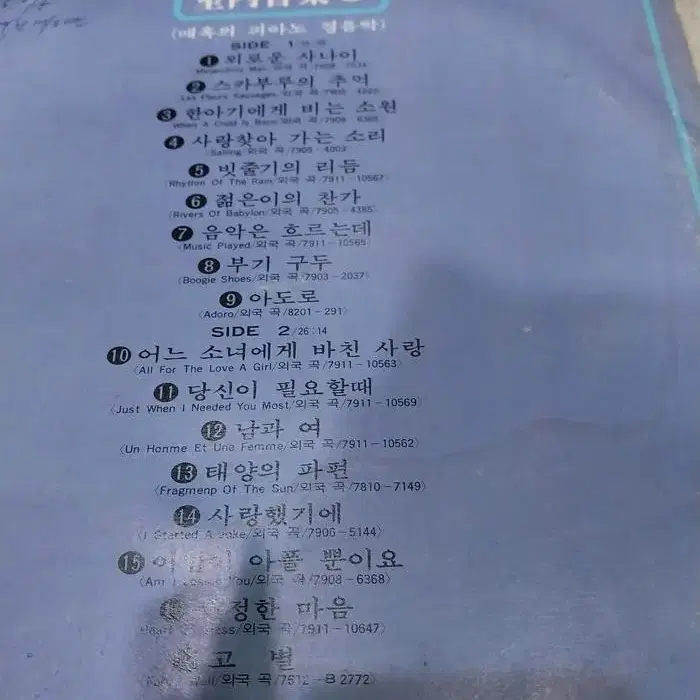 (매혹의 피아노 경음악)
SIDE 1
❶ 외로운 사나이
❷ 스카부루의 추억
❸ 한아기에게 비는 소원
When A Child Is Born/외국 곡/7908-6365
❹ 사랑찾아 가는 소리
(Sailing/외국 곡/7905-4003
❺ 빗줄기의 리듬
Rhythm Of The Rain/외국 곡/7911-10567)
❻ 젊은이의 찬가
(Rivers Of Babylon/외국 곡/7905-4385)
❼ 음악은 흐르는데
(Music Played/외국 곡/7911-10565)
❽ 부기 구두
(Boogie Shoes/외국 곡/7903-2037)
❾ 아도로
(Adoro/외국 곡/8201-291)
SIDE 2/26:14
❿ 어느 소녀에게 바친 사랑
(All For The Love A Girl/외국 곡/7911-10563)
⓫ 당신이 필요할때
(Just When I Needed You Most/외국 곡/7911-10569)
⓬ 남과 여
(Un Honme Et Une Femme/외국 곡/7911-10562)
⓭ 태양의 파편
(Fragmenp Of The Sun/외국 곡/7810-7149)
⓮ 사랑했기에
(I Started A Joke/외국 곡/7906-5144)
⓯ 아플 뿐이요
(Am I You/외국 곡/7908-6368)
정한 마음
외국 곡/7911-10647)
고 별
외국 곡/7612-B2772)